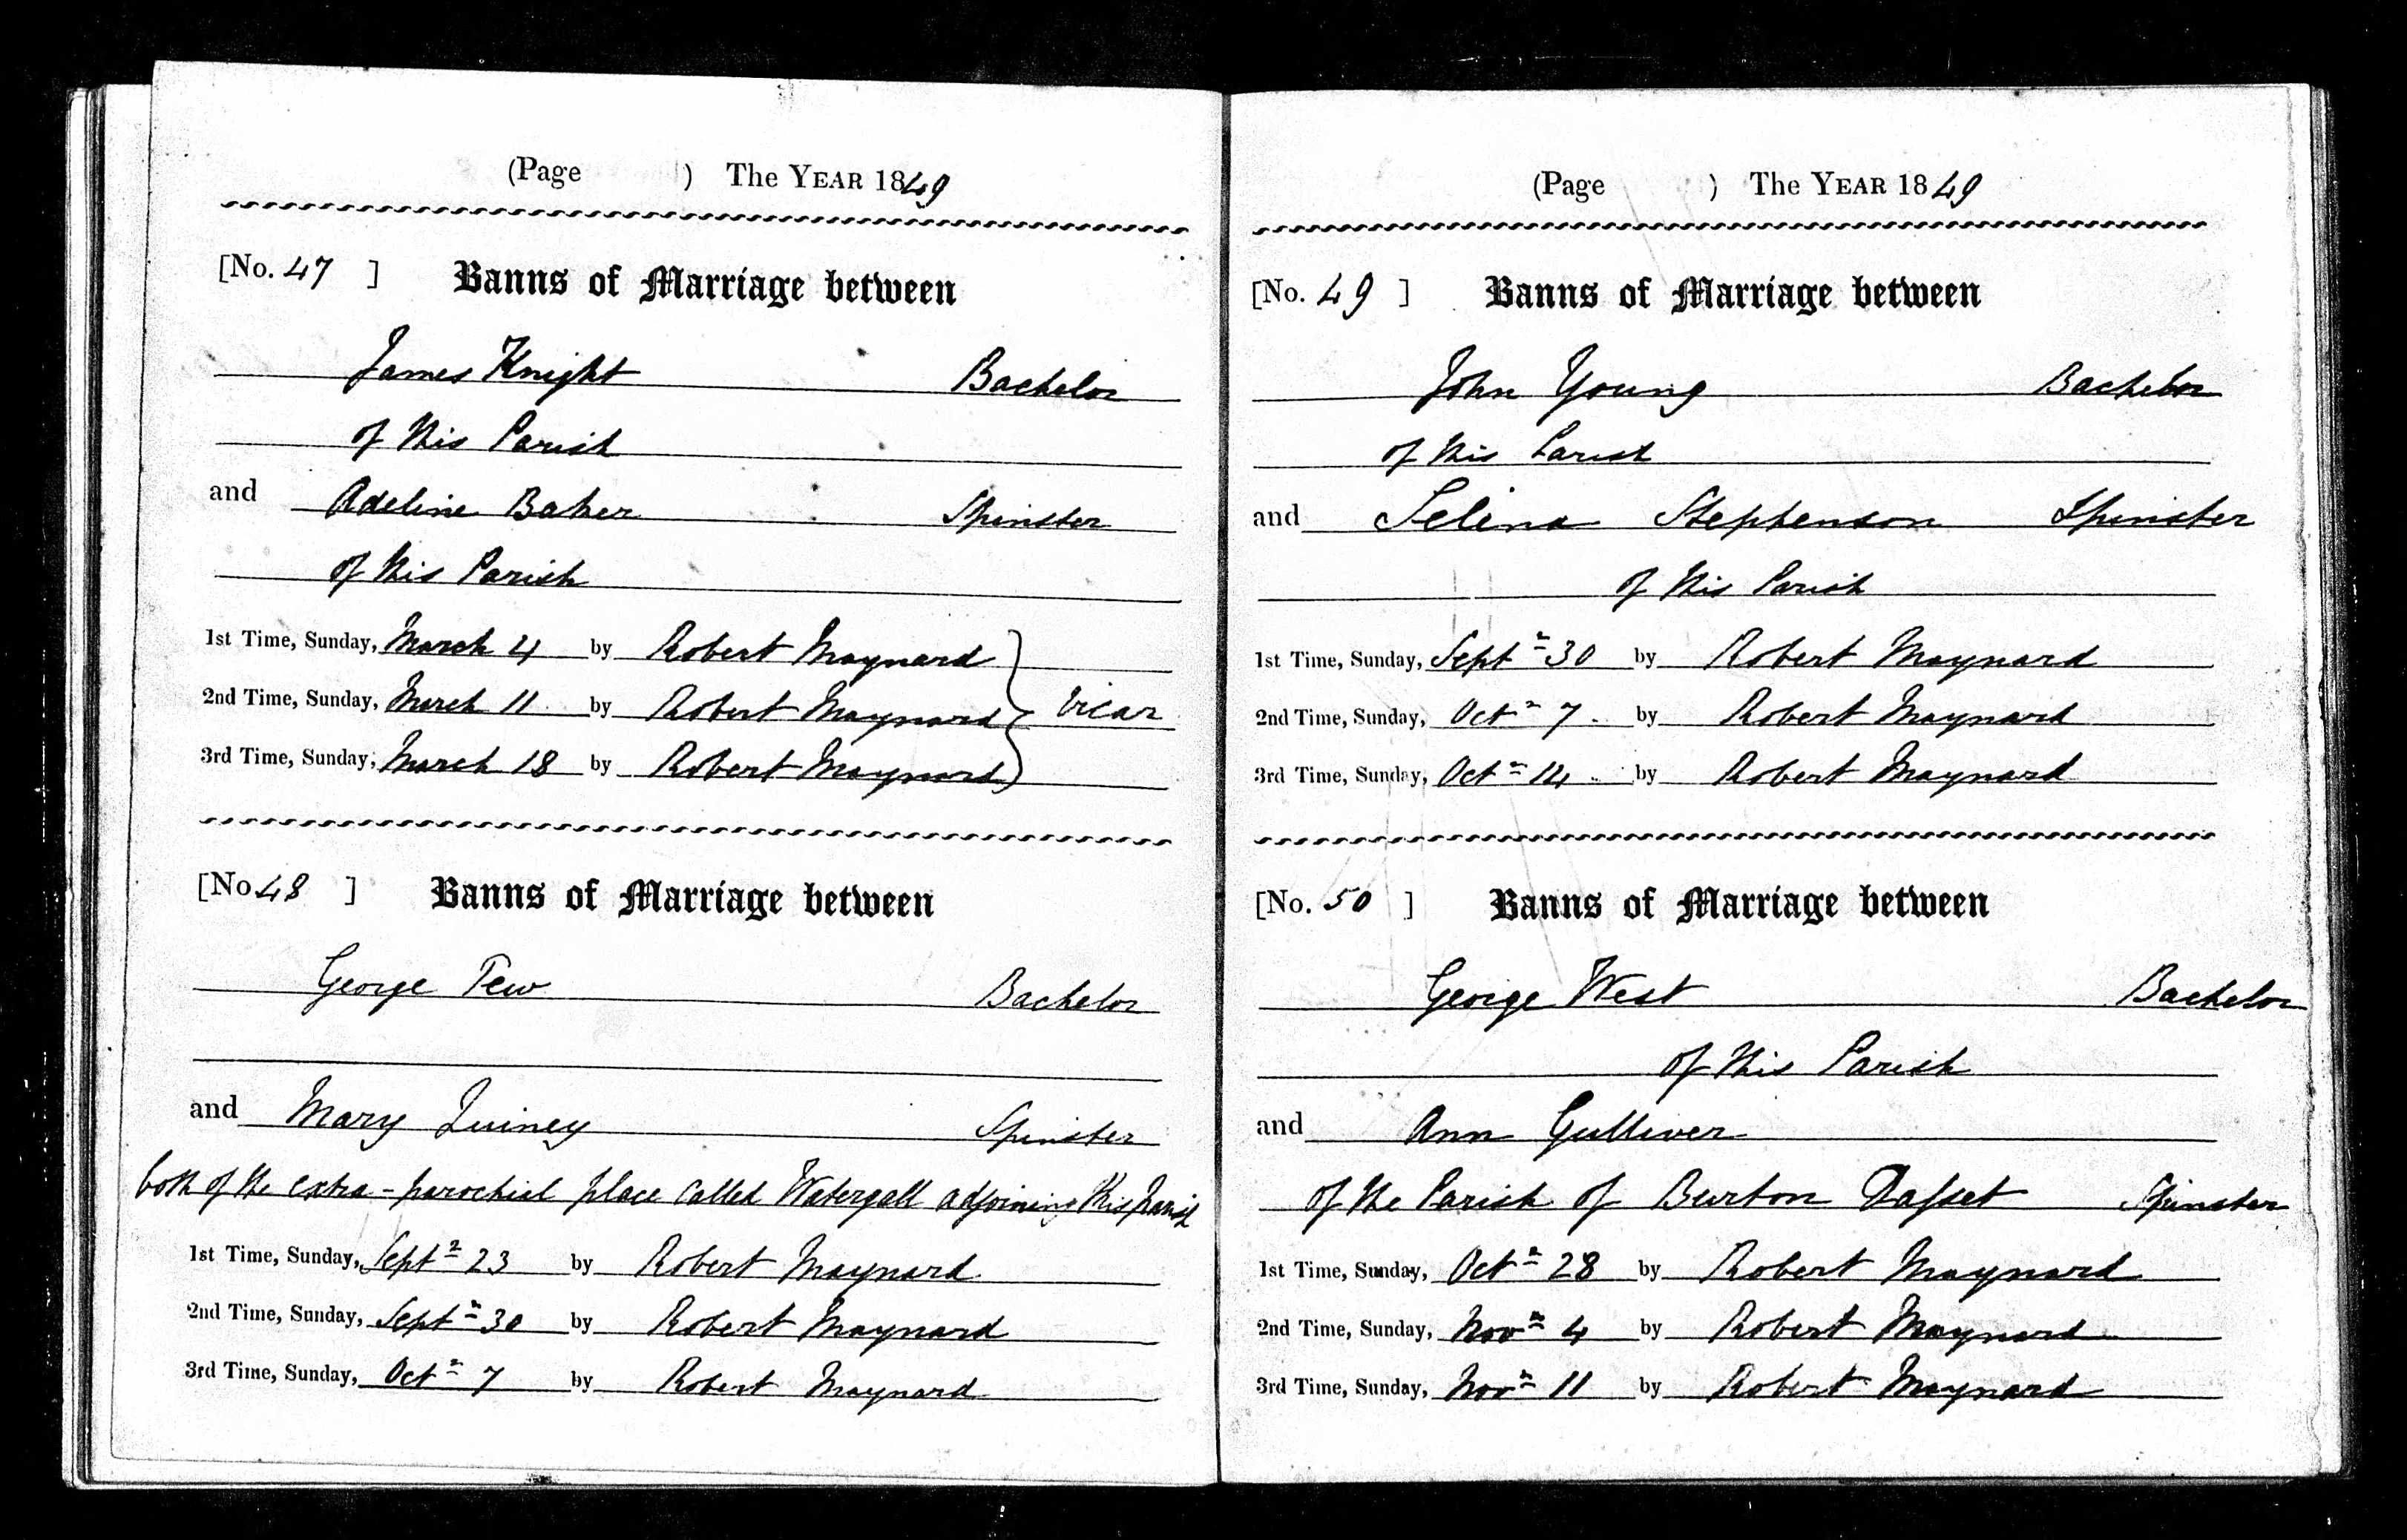 (Page ) The YEAR 1849
[No. 47 ] Banns of Marriage between
James Knight Bachelor
of this Parish
and Adeline Baker Spinster
of this Parish
1st Time, Sunday, March 4 by Robert Maynard
2nd Time, Sunday, March 11 by Robert Maynard } Vicar
3rd Time, Sunday, March 18 by Robert Maynard
[No 48 ] Banns of Marriage between
George Tew Bachelor
and Mary Quiney Spinster
both of the extra-parochial place called Watergall adjoining this Parish
1st Time, Sunday, Septr 23 by Robert Maynard
2nd Time, Sunday, Septr 30 by Robert Maynard
3rd Time, Sunday, Octr 7 by Robert Maynard
(Page ) The YEAR 1849
[No. 49 ] Banns of Marriage between
John Young Bachelor
of this Parish
and Selina Stephenson Spinster
of this Parish
1st Time, Sunday, Septr 30 by Robert Maynard
2nd Time, Sunday, Octr 7 by Robert Maynard
3rd Time, Sunday, Octr 14 by Robert Maynard
[No. 50 ] Banns of Marriage between
George West Bachelor
of this Parish
and Ann Gulliver
of the Parish of Burton Dasset Spinster
1st Time, Sunday, Octr 28 by Robert Maynard
2nd Time, Sunday, Novr 4 by Robert Maynard
3rd Time, Sunday, Novr 11 by Robert Maynard